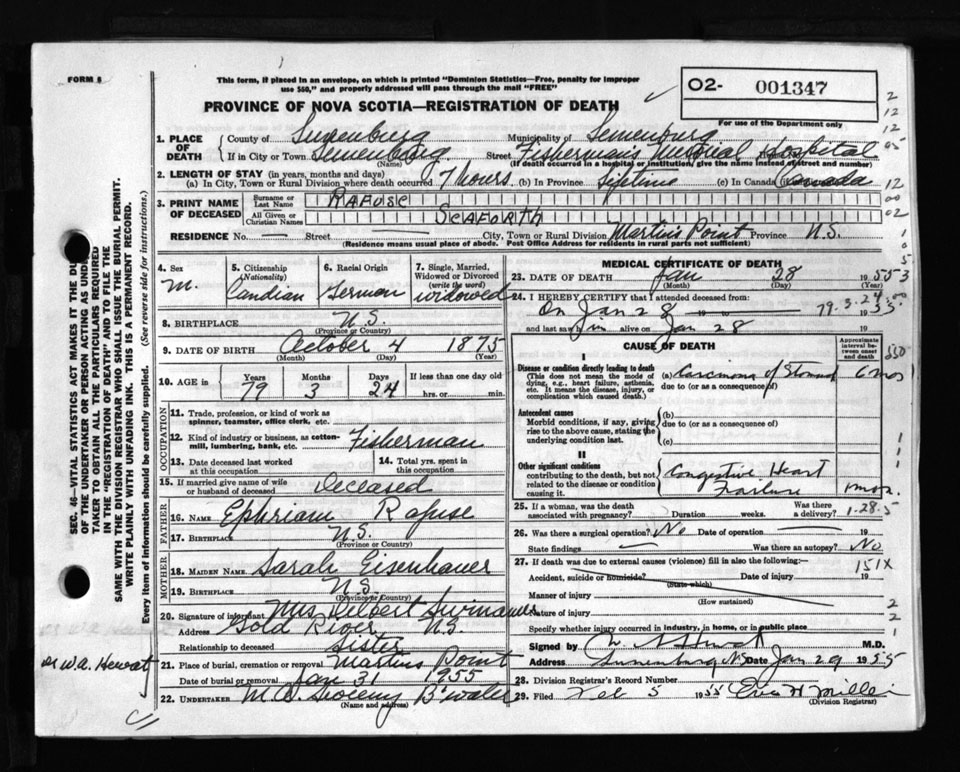 FORM 8
This form, if placed in an envelope, on which is printed "Dominion Statistics—Free, penalty for improper
use $50," and properly addressed will pass through the mail "FREE"
PROVINCE OF NOVA SCOTIA—REGISTRATION OF DEATH
02- 001347
For use of the Department only
1. PLACE OF DEATH
County of Lunenburg Municipality of Lunenburg
If in City or Town Lunenburg Street Fisherman's Memorial Hospital
(Name) (If death occurred in a hospital or institution, give the name instead of street and number)
2. LENGTH OF STAY (in years, months and days)
(a) In City, Town or Rural Division where death occurred 7 hours (b) In Province Lifetime (c) In Canada Canada
3. PRINT NAME OF DECEASED
Surname or Last Name RAFUSE
All Given or Christian Names SEAFORTH
RESIDENCE No. — Street — City, Town or Rural Division Martins Point Province N.S.
(Residence means usual place of abode. Post Office Address for residents in rural parts not sufficient)
4. Sex
M.
5. Citizenship (Nationality)
Candian
6. Racial Origin
German
7. Single, Married, Widowed or Divorced (write the word)
widowed
8. BIRTHPLACE N.S.
(Province or Country)
9. DATE OF BIRTH October 4 1875
(Month) (Day) (Year)
10. AGE in Years Months Days If less than one day old
79 3 24 hrs. or min.
OCCUPATION
11. Trade, profession, or kind of work as
spinner, teamster, office clerk, etc.
12. Kind of industry or business, as cotton-
mill, lumbering, bank, etc. Fisherman
13. Date deceased last worked
at this occupation
14. Total yrs. spent in
this occupation
15. If married give name of wife
or husband of deceased Deceased
FATHER
16. NAME Ephriam Rafuse
17. BIRTHPLACE N.S.
(Province or Country)
MOTHER
18. MAIDEN NAME Sarah Eisenhauer
19. BIRTHPLACE N.S.
(Province or Country)
20. Signature of informant Mrs Delbert
Address Gold River N.S.
Relationship to deceased Sister
21. Place of burial, cremation or removal Martins Point
Date of burial or removal Jan 31 1955
22. UNDERTAKER B'water
(Name and address)
MEDICAL CERTIFICATE OF DEATH
23. DATE OF DEATH Jan 28 1955
(Month) (Day) (Year)
24. I HEREBY CERTIFY that I attended deceased from
On Jan 28
79.3.24
and last saw him alive on Jan 28 19
CAUSE OF DEATH
Approximate interval between onset and death
I
Disease or condition directly leading to death
(This does not mean the mode of
dying, e.g., heart failure, asthenia,
etc. It means the disease, injury, or
complication which caused death.)
(a) Carcinoma of Stomach 6 mos
due to (or as a consequence of)
Antecedent causes
Morbid conditions, if any, giving
rise to the above cause, stating the
underlying condition last.
(b)
due to (or as a consequence of)
(c)
II
Other significant conditions
contributing to the death, but not
related to the disease or condition
causing it.
Congestive Heart
Failure
25. If a woman, was the death
associated with pregnancy? Duration weeks. Was there a delivery?
1.28.5
26. Was there a surgical operation? No Date of operation 19
State findings — Was there an autopsy? No
27. If death was due to external causes (violence) fill in also the following:—
151X
Accident, suicide or homicide? Date of injury 19
(State which)
Manner of injury
(How sustained)
Nature of injury
Specify whether injury occurred in industry, in home, or in public place
Signed by M.D.
Address Lunenburg NS Date Jan 29 1955
28. Division Registrar's Record Number
29. Filed Feb 5 1955
(Division Registrar)
SEC. 46—VITAL STATISTICS ACT MAKES IT THE DU
OF THE UNDERTAKER OR PERSON ACTING AS UND
TAKER TO OBTAIN ALL THE PARTICULARS REQUIRED
IN THE "REGISTRATION OF DEATH" AND TO FILE THE
SAME WITH THE DIVISION REGISTRAR WHO SHALL ISSUE THE BURIAL PERMIT.
WRITE PLAINLY WITH UNFADING INK. THIS IS A PERMANENT RECORD.
Every item of information should be carefully supplied. (See reverse side for instructions.)
Dr W.A. Hewat
2
12
12
05
12
00
02
1
0
5
3
550
1
1
2
2
1